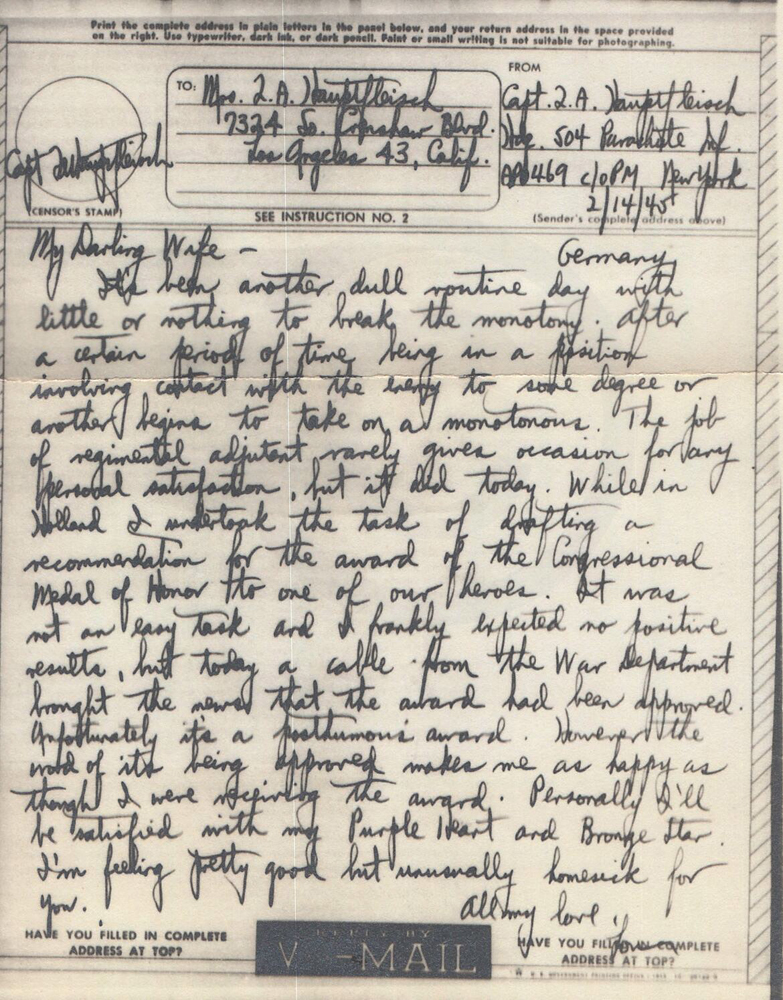 Print the complete address in plain letters in the panel below, and your return address in the space provided
on the right. Use typewriter, dark ink, or dark pencil. Faint or small writing is not suitable for photographing.
FROM
TO: Mrs. L. A. Hauptfleisch
7324 So. Crenshaw Blvd.
Los Angeles 43, Calif.
Capt. L. A. Hauptfleisch
Hdq. 504 Parachute Inf.
APO 469 c/o PM New York
2/14/45
(Sender's complete address above)
Capt L Hauptfleisch
(CENSOR'S STAMP)
SEE INSTRUCTION NO. 2
My Darling Wife –
Germany
It's been another dull routine day with
little or nothing to break the monotony. After
a certain period of time, being in a position
involving contact with the enemy to some degree or
another begins to take on a monotonous. The job
of regimental adjutant rarely gives occasion for any
personal satisfaction, but it did today. While in
Holland I undertook the task of drafting a
recommendation for the award of the Congressional
Medal of Honor to one of our heroes. It was
not an easy task and I frankly expected no positive
results, but today a cable from the War Department
brought the news that the award had been approved.
Unfortunately it's a posthumous award. However the
word of its being approved makes me as happy as
though I were receiving the award. Personally I'll
be satisfied with my Purple Heart and Bronze Star.
I'm feeling pretty good but unusually homesick for
you.
All my love,
HAVE YOU FILLED IN COMPLETE
ADDRESS AT TOP?
REPLY BY
V-MAIL
HAVE YOU FILLED IN COMPLETE
ADDRESS AT TOP?